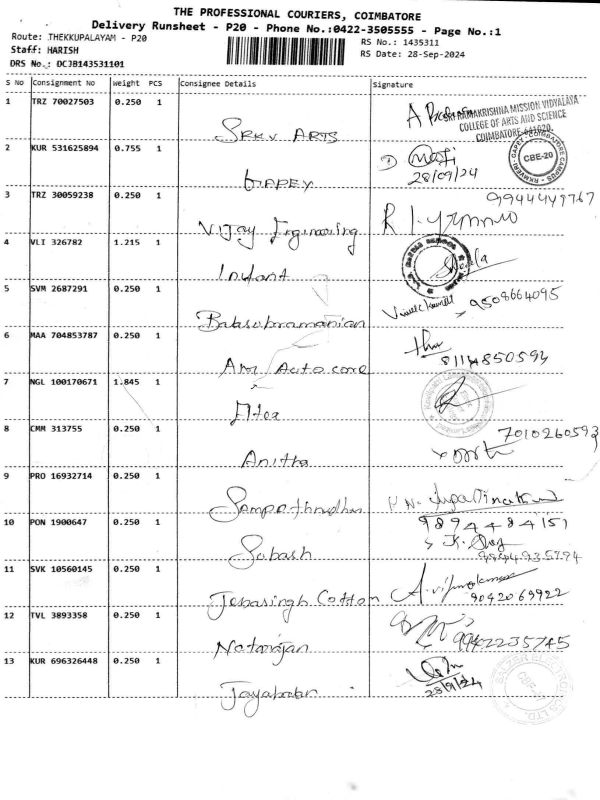 THE PROFESSIONAL COURIERS, COIMBATORE
Delivery Runsheet - P20 - Phone No.:0422-3505555 - Page No.:1
Route: THEKKUPALAYAM - P20
RS No.: 1435311
Staff: HARISH
RS Date: 28-Sep-2024
DRS No.: DCJB143531101
S No Consignment No Weight PCS Consignee Details Signature
1 TRZ 70027503 0.250 1
SRI RAMAKRISHNA MISSION VIDYALAYA
COLLEGE OF ARTS AND SCIENCE
COIMBATORE-641020.
SRKV ARTS
2 KUR 531625894 0.755 1
CBE-20
28/09/24
GAPEY
3 TRZ 30059238 0.250 1
9944449767
Vijay Engineering
4 VLI 326782 1.215 1
Infant
5 SVM 2687291 0.250 1
9508664095
Balasubramanian
6 MAA 704853787 0.250 1
8114850594
AM Auto core
7 NGL 100170671 1.845 1
8 CMM 313755 0.250 1
7010260593
Anitha
9 PRO 16932714 0.250 1
10 PON 1900647 0.250 1
9894484151
Subash
11 SVK 10560145 0.250 1
Jebasingh Cotton
9042069922
12 TVL 3893358 0.250 1
9942235745
Natarajan
13 KUR 696326448 0.250 1
28/9/24